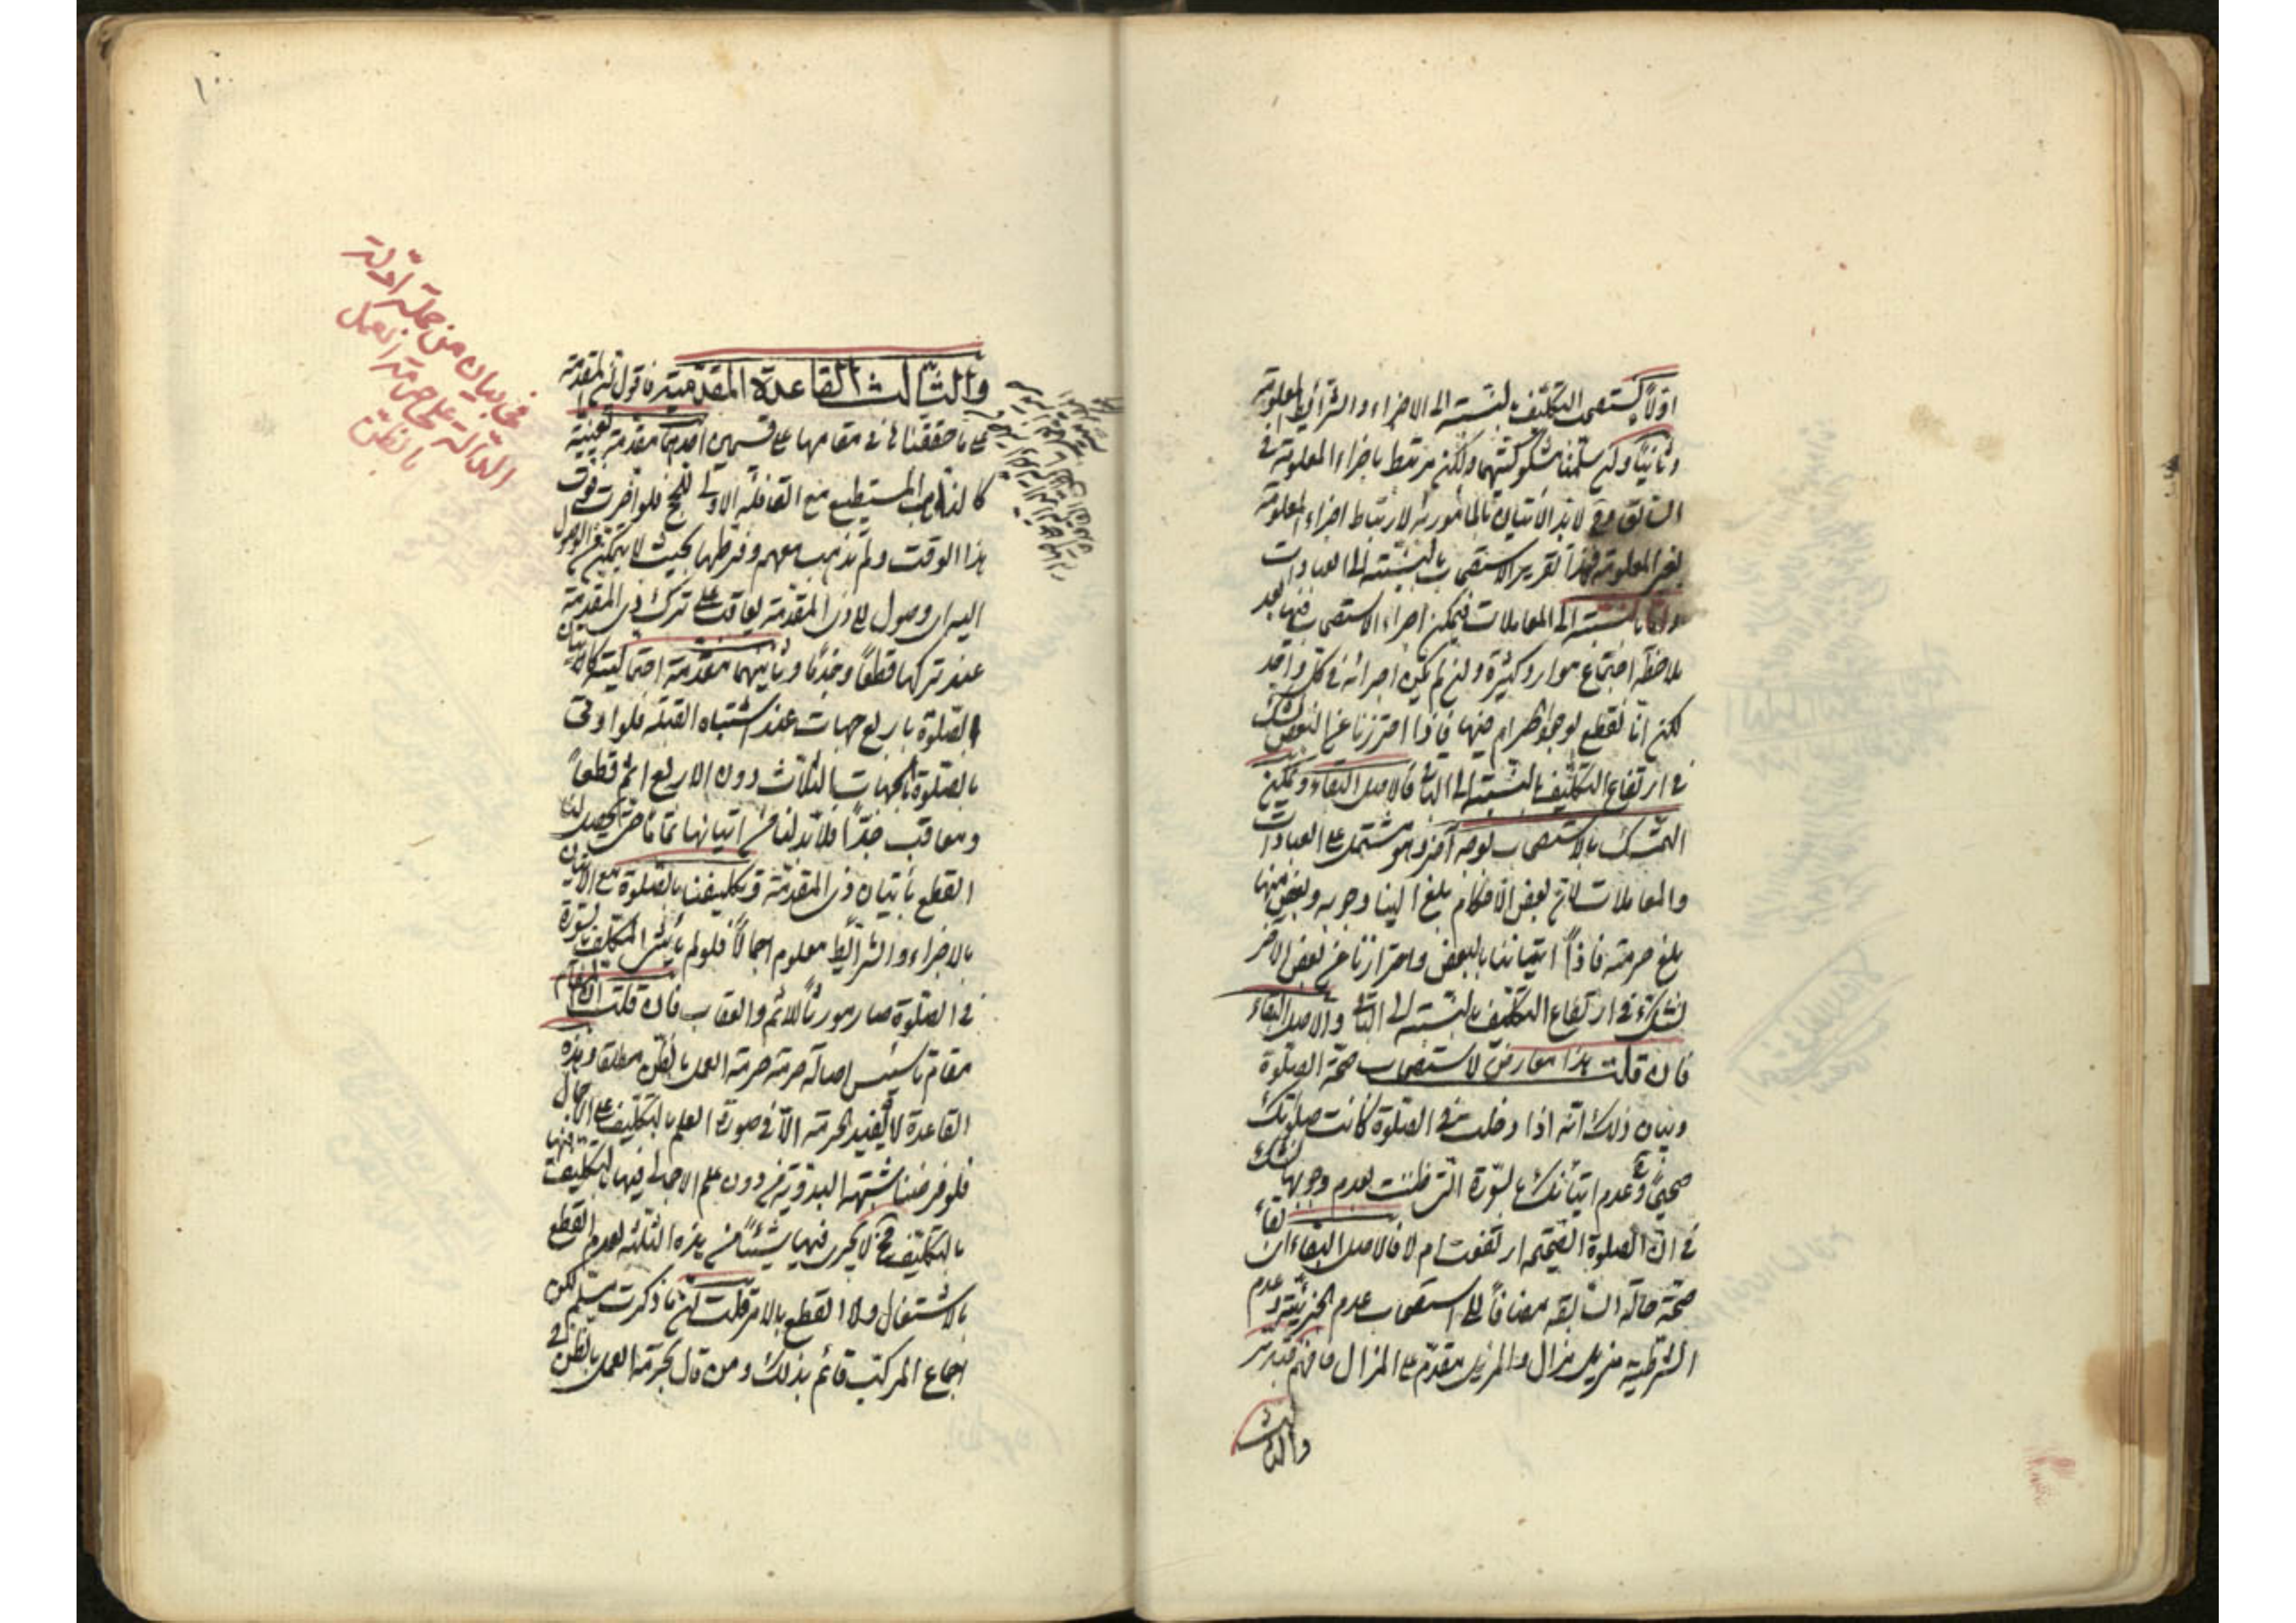 اولا يستصحب التكليف بالنسبة الى الاجزاء والشرائط المعلومة
وثانيا ولئن سلمنا مشكوكيتهما ولكن مرتبط باجزاء المعلومة في
السابق وح لا بد الاتيان بالمأمور به لارتباط اجزاء المعلومة
لغير المعلومة فهذا تقرير الاستصحاب بالنسبة الى العبادات
واما بالنسبة الى المعاملات فيمكن اجراء الاستصحاب فيها بعد
ملاحظة اجتماع موارد كثيرة ولئن لم يمكن اجرائه في كل واحد
لكن انا نقطع لوجود حرام فيها فاذا احترزنا عن البعض نشك
في ارتفاع التكليف بالنسبة الى الباقي فالاصل البقاء ويمكن
التمسك بالاستصحاب لوجه آخر وهو مشتمل على العبادات
والمعاملات لان بعض الاحكام بلغ الينا وجوبه وبعض منها
بلغ حرمته فاذا اتياننا بالبعض واحترازنا عن بعض الاخر
نشك في ارتفاع التكليف بالنسبة الى الباقي والاصل البقاء
فان قلت هذا معارض لاستصحاب صحة الصلوة
وبيان ذلك انه اذا دخلت في الصلوة كانت صلوتك
صحيحا وعدم اتيانك بالسورة التي ظننت بعدم وجوبها نشك
في ان الصلوة الصحيحة ارتفعت ام لا فالاصل البقاء
صحة حالة السابقة مضافا الى استصحاب عدم الجزئية وعدم
الشرطية مزيل مزال والمزيل مقدم على المزال فافهم فتدبر
والثالث
١٠٠
في بيان من جملة ادلة
الدالة على حرمة العمل
بالظن
والثالث القاعدة المقدمية فاقول ان المقدمة
على ما حققنا في مقامها على قسمين احدهما مقدمة يقينية
كالذهاب المستطيع مع القافلة الاولى للحج فلو اخرت فوت
هذا الوقت ولم تذهب معهم وفرطها بحيث لا يمكن الوصول
اليه اي وصول الى ذي المقدمة يعاقب على ترك ذي المقدمة
عند تركها قطعا وجزما وثانيهما مقدمة احتمالية كاتيان
الصلوة باربع جهات عند اشتباه القبلة فلو اوتى
بالصلوة بالجهات الثلاث دون الاربع اثم قطعا
ومعاقب جدا فلا بد لنا من اتيانها تماما حتى يحصل لنا
القطع باتيان ذي المقدمة وتكليفنا بالصلوة مع الاتيان
بالاجزاء والشرائط معلوم اجمالا فلو لم يأتي المكلف بالسورة
في الصلوة صار مورثا للاثم والعقاب فان قلت ان المقام
مقام تاسيس اصالة حرمة العمل بالظن مطلقا وهذه
القاعدة لا يفيد الحرمة الا في صورة العلم بالتكليف على الاجمال
فلو فرضنا شبهة البدوية من دون علم الاجمالي فيها
بالتكليف فح لا يجري فيها شيئا من هذه الثلثة لعدم القطع
بالاشتغال ولا القطع بالامر قلت لئن ما ذكرت مسلم لكن
اجماع المركب قائم بذلك ومن قال بحرمة العمل بالظن في